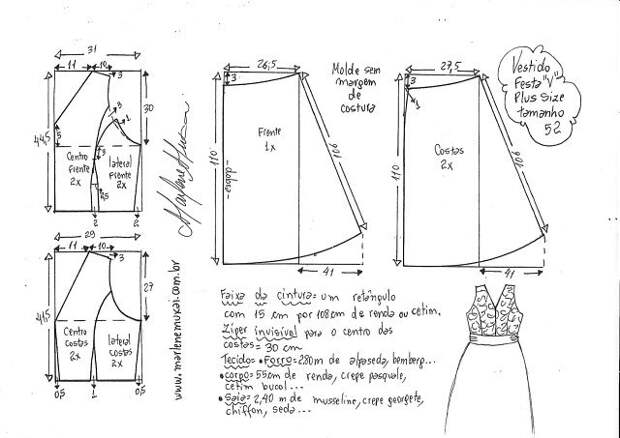 31
11
10
3
3
1
30
44,5
5
3
Centro
frente
2x
lateral
frente
2x
2
2
29
11
10
3
27
41,5
Centro
costas
2x
lateral
costas
2x
0,5
1
0,5
www.marlenemukai.com.br
26,5
3
Frente
1x
dobra
110
106
41
Molde sem
margem
de
costura
27,5
3
1
Costas
2x
110
106
41
Vestido
Festa "V"
Plus Size
tamanho
52
Faixa da cintura= um retângulo
com 15 cm por 108cm de renda ou cetim.
Zíper invisível para o centro das
costas = 30 cm
Tecidos •Forro: 2,80m de alpaseda, bemberg...
•corpo: 55cm de renda, crepe pasquale,
cetim bucol...
•Saia= 2,40 m de musseline, crepe georgete,
chiffon, seda...